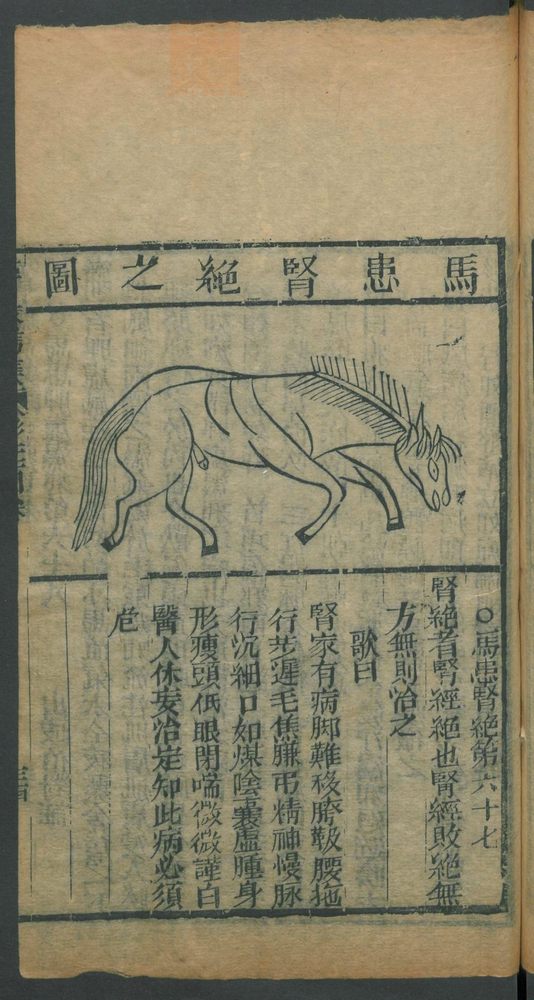 馬患腎絕之圖
○馬患腎絕第六十七
腎絕者腎經絕也腎經敗絕無
方無則治之
歌曰
腎家有病脚難移胯靸腰拖
行步遲毛焦膁吊精神慢脉
行沉細口如煤陰囊虛腫身
形瘦頭低眼閉喘微微謹白
醫人休妄治定知此病必須
危